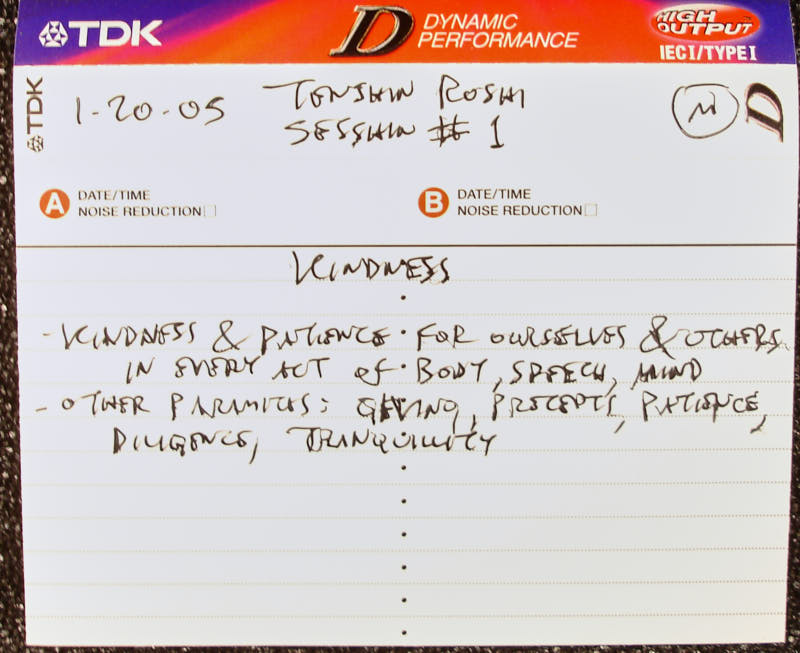 TDK D DYNAMIC PERFORMANCE HIGH OUTPUT IECI/TYPE I
TDK 1-20-05 TENSHIN ROSHI M D
SESSHIN # 1
A DATE/TIME NOISE REDUCTION B DATE/TIME NOISE REDUCTION
KINDNESS
- KINDNESS & PATIENCE FOR OURSELVES & OTHERS
IN EVERY ACT of BODY, SPEECH, MIND
- OTHER PARAMITAS: GIVING, PRECEPTS, PATIENCE,
DILIGENCE, TRANQUILLITY